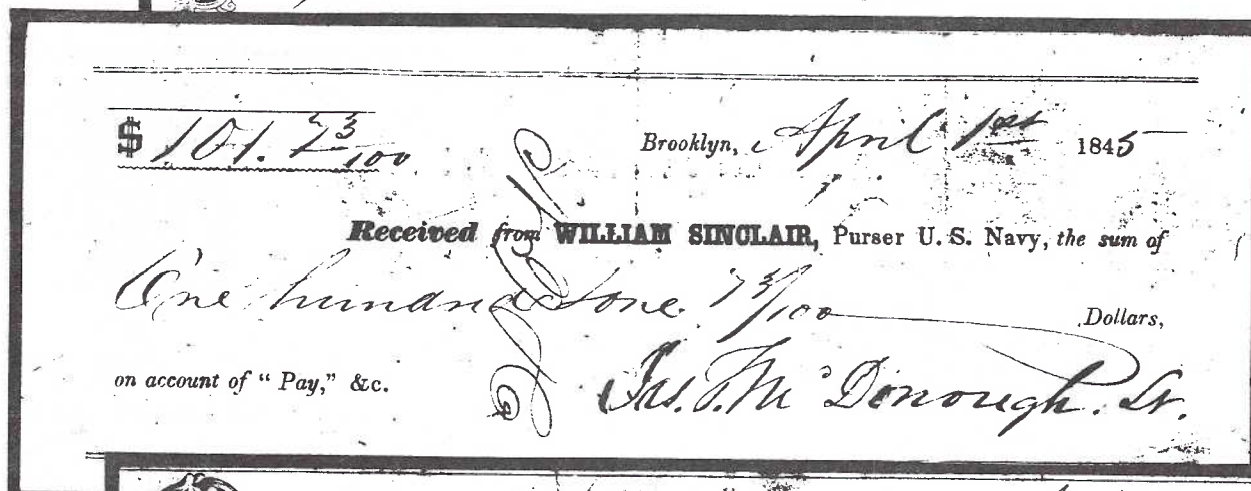 $ 101. 73/100
Brooklyn, April 1st 1845
Received from WILLIAM SINCLAIR, Purser U. S. Navy, the sum of
One hundred & one 73/100 Dollars,
on account of “ Pay,” &c.
Jas. McDonough. Lt.